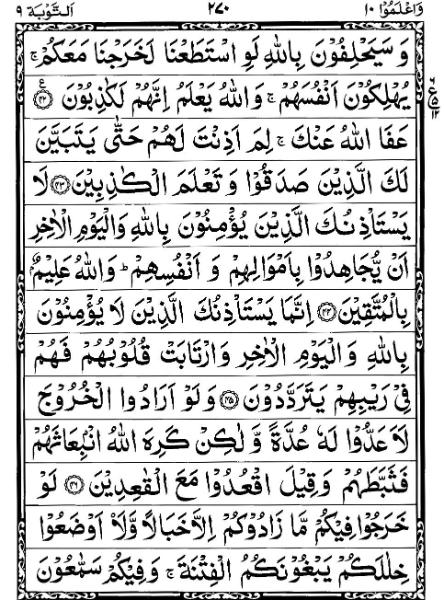 وَاعْلَمُوْٓا ١٠ ٢٧٠ اَلتَّوْبَة ٩
وَ سَيَحْلِفُوْنَ بِاللّٰهِ لَوِ اسْتَطَعْنَا لَخَرَجْنَا مَعَكُمْ ۚ
يُهْلِكُوْنَ اَنْفُسَهُمْ ۚ وَاللّٰهُ يَعْلَمُ اِنَّهُمْ لَكٰذِبُوْنَ ﴿۴۲﴾ ع
عَفَا اللّٰهُ عَنْكَ ۚ لِمَ اَذِنْتَ لَهُمْ حَتّٰى يَتَبَيَّنَ
لَكَ الَّذِيْنَ صَدَقُوْا وَ تَعْلَمَ الْكٰذِبِيْنَ ﴿۴۳﴾ لَا
يَسْتَاْذِنُكَ الَّذِيْنَ يُؤْمِنُوْنَ بِاللّٰهِ وَالْيَوْمِ الْاٰخِرِ
اَنْ يُّجَاهِدُوْا بِاَمْوَالِهِمْ وَ اَنْفُسِهِمْ ؕ وَاللّٰهُ عَلِيْمٌۢ
بِالْمُتَّقِيْنَ ﴿۴۴﴾ اِنَّمَا يَسْتَاْذِنُكَ الَّذِيْنَ لَا يُؤْمِنُوْنَ
بِاللّٰهِ وَ الْيَوْمِ الْاٰخِرِ وَ ارْتَابَتْ قُلُوْبُهُمْ فَهُمْ
فِيْ رَيْبِهِمْ يَتَرَدَّدُوْنَ ﴿۴۵﴾ وَ لَوْ اَرَادُوا الْخُرُوْجَ
لَاَعَدُّوْا لَهٗ عُدَّةً وَّ لٰكِنْ كَرِهَ اللّٰهُ انْۢبِعَاثَهُمْ
فَثَبَّطَهُمْ وَ قِيْلَ اقْعُدُوْا مَعَ الْقٰعِدِيْنَ ﴿۴۶﴾ لَوْ
خَرَجُوْا فِيْكُمْ مَّا زَادُوْكُمْ اِلَّا خَبَالًا وَّلَا۟اَوْضَعُوْا
خِلٰلَكُمْ يَبْغُوْنَكُمُ الْفِتْنَةَ ۚ وَ فِيْكُمْ سَمّٰعُوْنَ